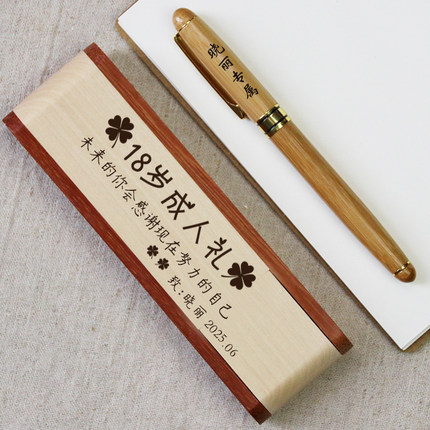 晓丽专属
18岁成人礼
未来的你会感谢现在努力的自己
致:晓丽 2025.06